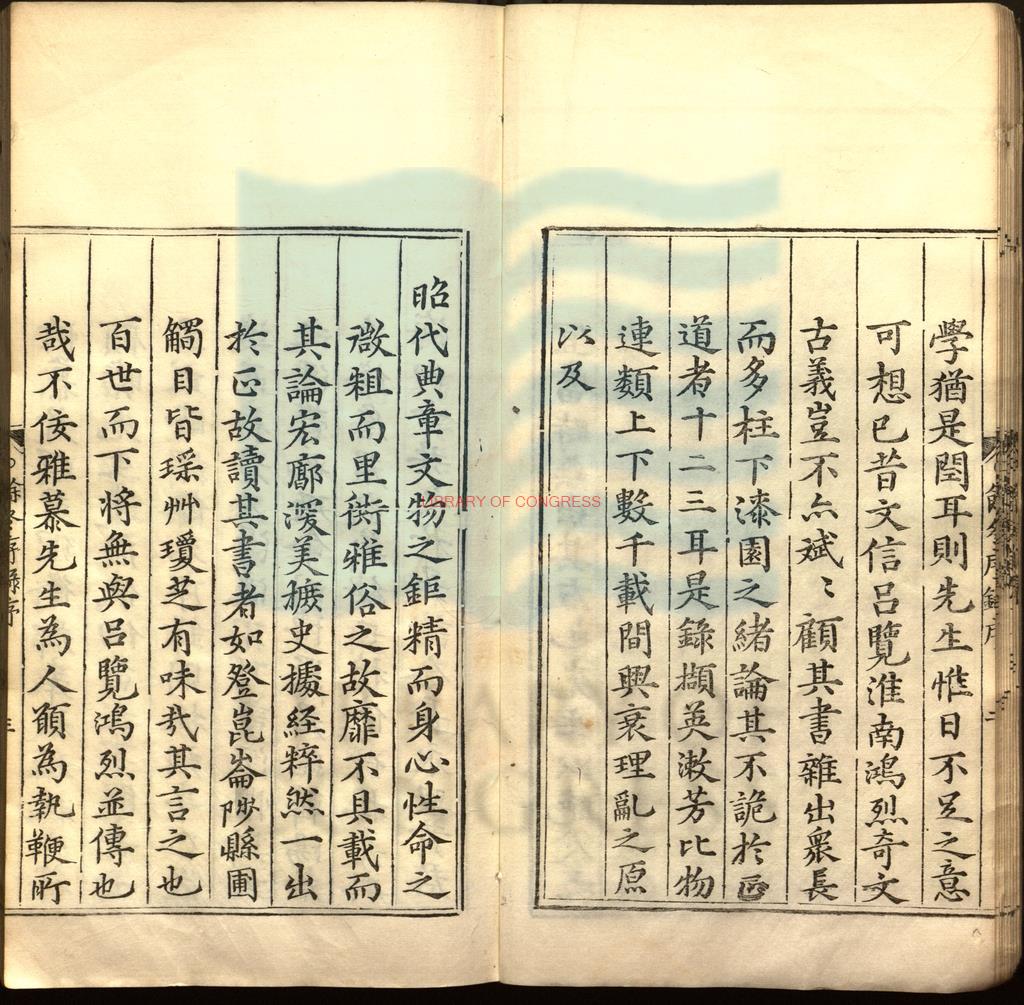 學猶是閏耳則先生惟日不足之意
可想已昔文信呂覽淮南鴻烈奇文
古義豈不亦斌〻顧其書雜出衆長
而多柱下漆園之緒論其不詭於正
道者十二三耳是錄擷英漱芳比物
連類上下數千載間興衰理亂之原
以及
昭代典章文物之鉅精而身心性命之
微粗而里衖雅俗之故靡不具載而
其論宏廓湥美摭史攄經粹然一出
於正故讀其書者如登崑崙陟縣圃
觸目皆瑶艸瓊芝有味哉其言之也
百世而下將無與呂覽鴻烈並傳也
哉不佞雅慕先生為人頋為執鞭所
餘冬序錄序
LIBRARY OF CONGRESS